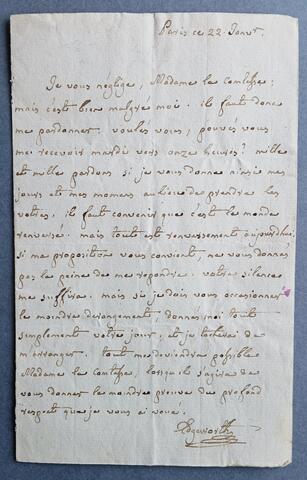 Paris ce 22 Janvr.
Je vous neglige, Madame la Comtesse;
mais c'est bien malgre moi. il faut donc
me pardonner. voulés vous, pouvés vous
me recevoir mardi vers onze heures? mille
et mille pardons si je vous donne ainsi mes
jours et mes momens au lieu de prendre les
votres. il faut convenir que c'est le monde
renversé. mais tout est renversement aujourd'hui.
Si ma proposition vous convient, ne vous donnés
pas la peine de me repondre. votre silence
me suffira. mais si je dois vous occasionner
le moindre derangement, donnés moi tout
simplement votre jour, et je tacherai de
m'arranger. tout me deviendra possible
Madame la Comtesse, lorsqu'il s'agira de
vous donner la moindre preuve du profond
respect que je vous ai voué.
Edgeworth